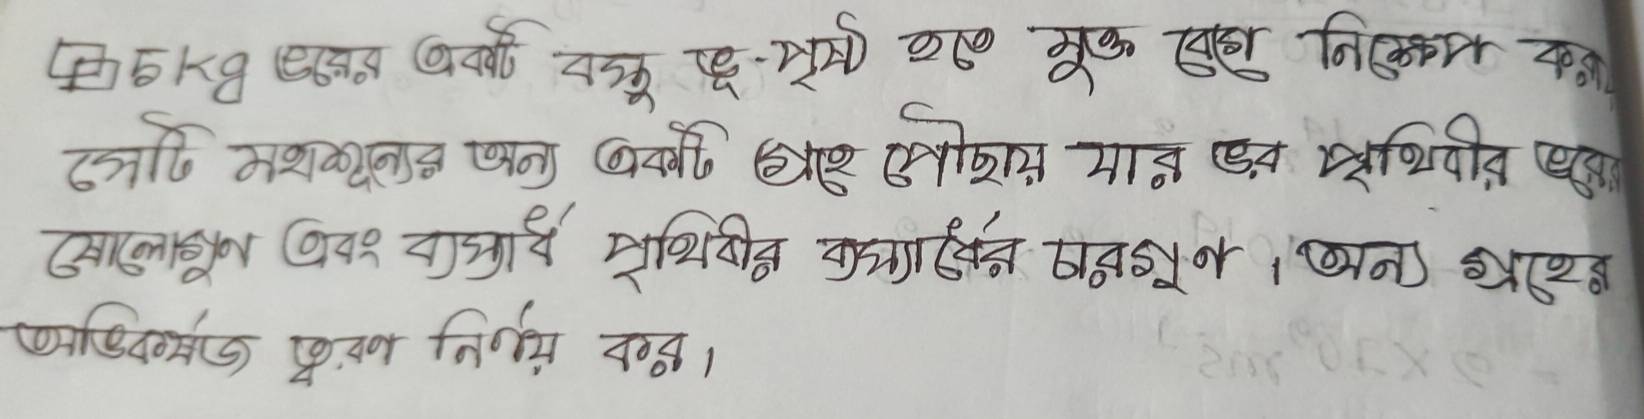 5kg ভরের একটি বস্তু ভূ-পৃষ্ঠ হতে মুক্ত বেগে নিক্ষেপ করা
সেটি মহাশূন্যের অন্য একটি গ্রহে পৌছায় যার ভর পৃথিবীর ভরের
ষোলোগুণ এবং ব্যাসার্ধ পৃথিবীর ব্যাসার্ধের চারগুণ। অন্য গ্রহের
অভিকর্ষজ ত্বরণ নির্ণয় কর।